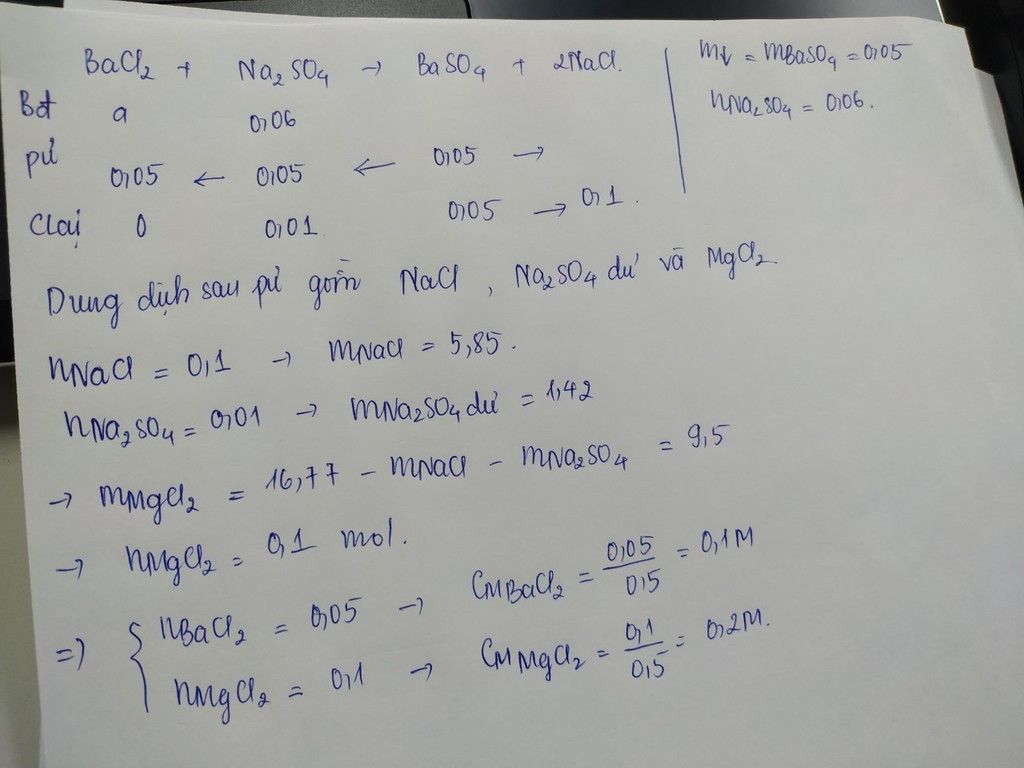 BaCl2 + Na2SO4 → BaSO4 + 2NaCl.
Bđ a 0,06
pứ 0,05 ← 0,05 ← 0,05 →
Clại 0 0,01 0,05 → 0,1.
m↓ = mBaSO4 = 0,05
nNa2SO4 = 0,06.
Dung dịch sau pứ gồm NaCl, Na2SO4 dư và MgCl2
nNaCl = 0,1 → mNaCl = 5,85.
nNa2SO4 = 0,01 → mNa2SO4 dư = 1,42
→ mMgCl2 = 16,77 - mNaCl - mNa2SO4 = 9,5
→ nMgCl2 = 0,1 mol.
=> { nBaCl2 = 0,05 → CMBaCl2 = 0,05/0,5 = 0,1M
nMgCl2 = 0,1 → CMMgCl2 = 0,1/0,5 = 0,2M.